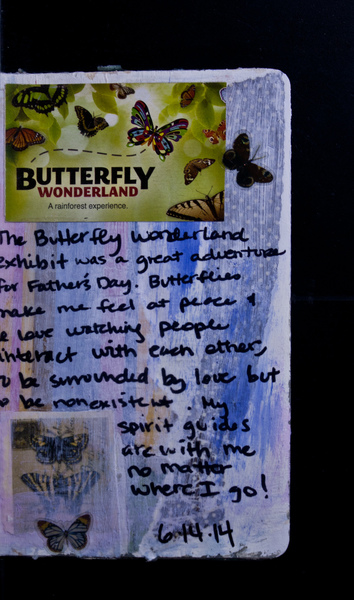 BUTTERFLY
WONDERLAND
A rainforest experience.
The Butterfly Wonderland
exhibit was a great adventure
for Father's Day. Butterflies
make me feel at peace &
love watching people
interact with each other,
to be surrounded by love but
to be nonexistent. My
spirit guides
are with me
no matter
where I go!
6.14.14